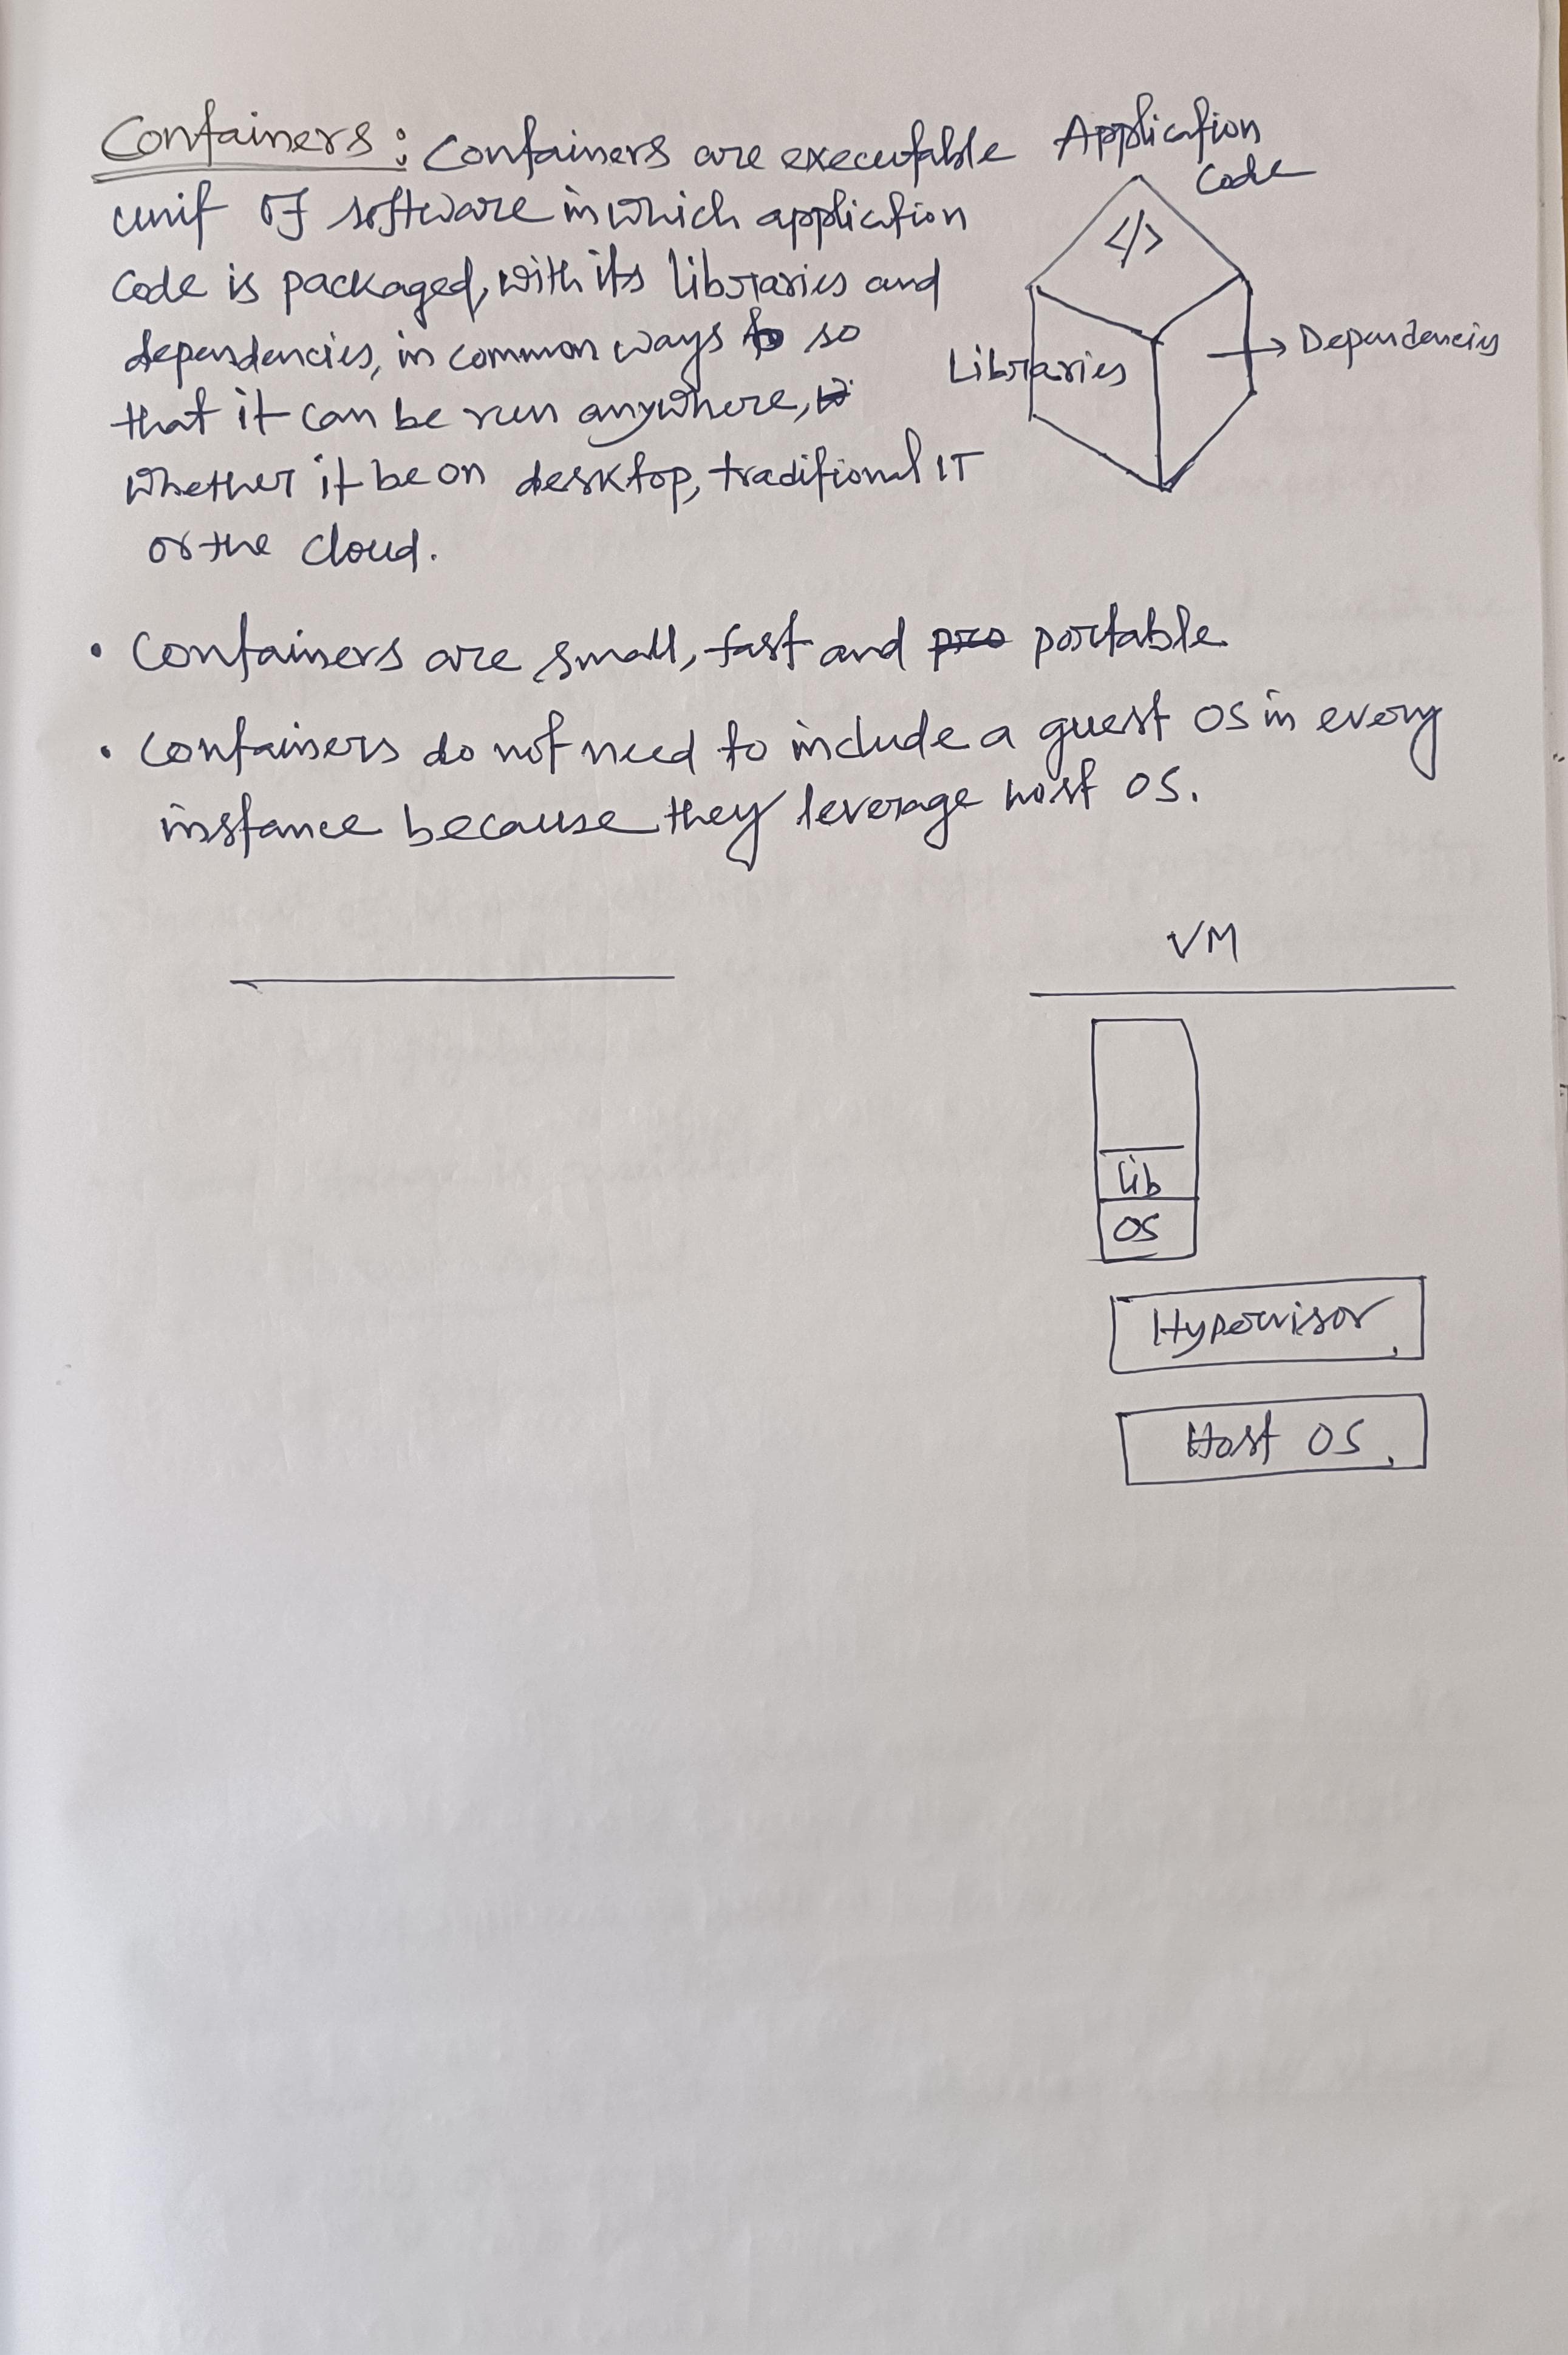 Containers: Containers are executable
unit of software in which application
code is packaged, with its libraries and
dependencies, in common ways so
that it can be run anywhere,
whether it be on desktop, traditional IT
or the cloud.
Application
Code
</>
Libraries
Dependencies
• Containers are small, fast and portable
• Containers do not need to include a guest OS in every
instance because they leverage host OS.
VM
lib
OS
Hypervisor
Host OS